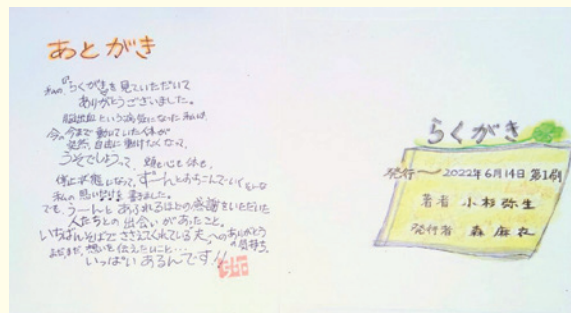 あとがき
私の、らくがきを見ていただいて
ありがとうございました。
脳出血という病気になった私は、
今の今まで動いていた体が
突然、自由に動けなくなって、
うそでしょうって、頭も心も体も、
停止状態になって、ずーんとおちこんでいく
私の思いだけを書きました。
でも、うーんとあふれる以上の感謝をいただいた
人たちとの出会いがあったこと。
いちばんそばでささえてくれている夫へのありがとう
の気持ち。
まだまだ、想いを伝えたいこと…
いっぱいあるんです!!
らくがき
発行〜2022年6月14日第1刷
著者 小林弥生
発行者 森麻